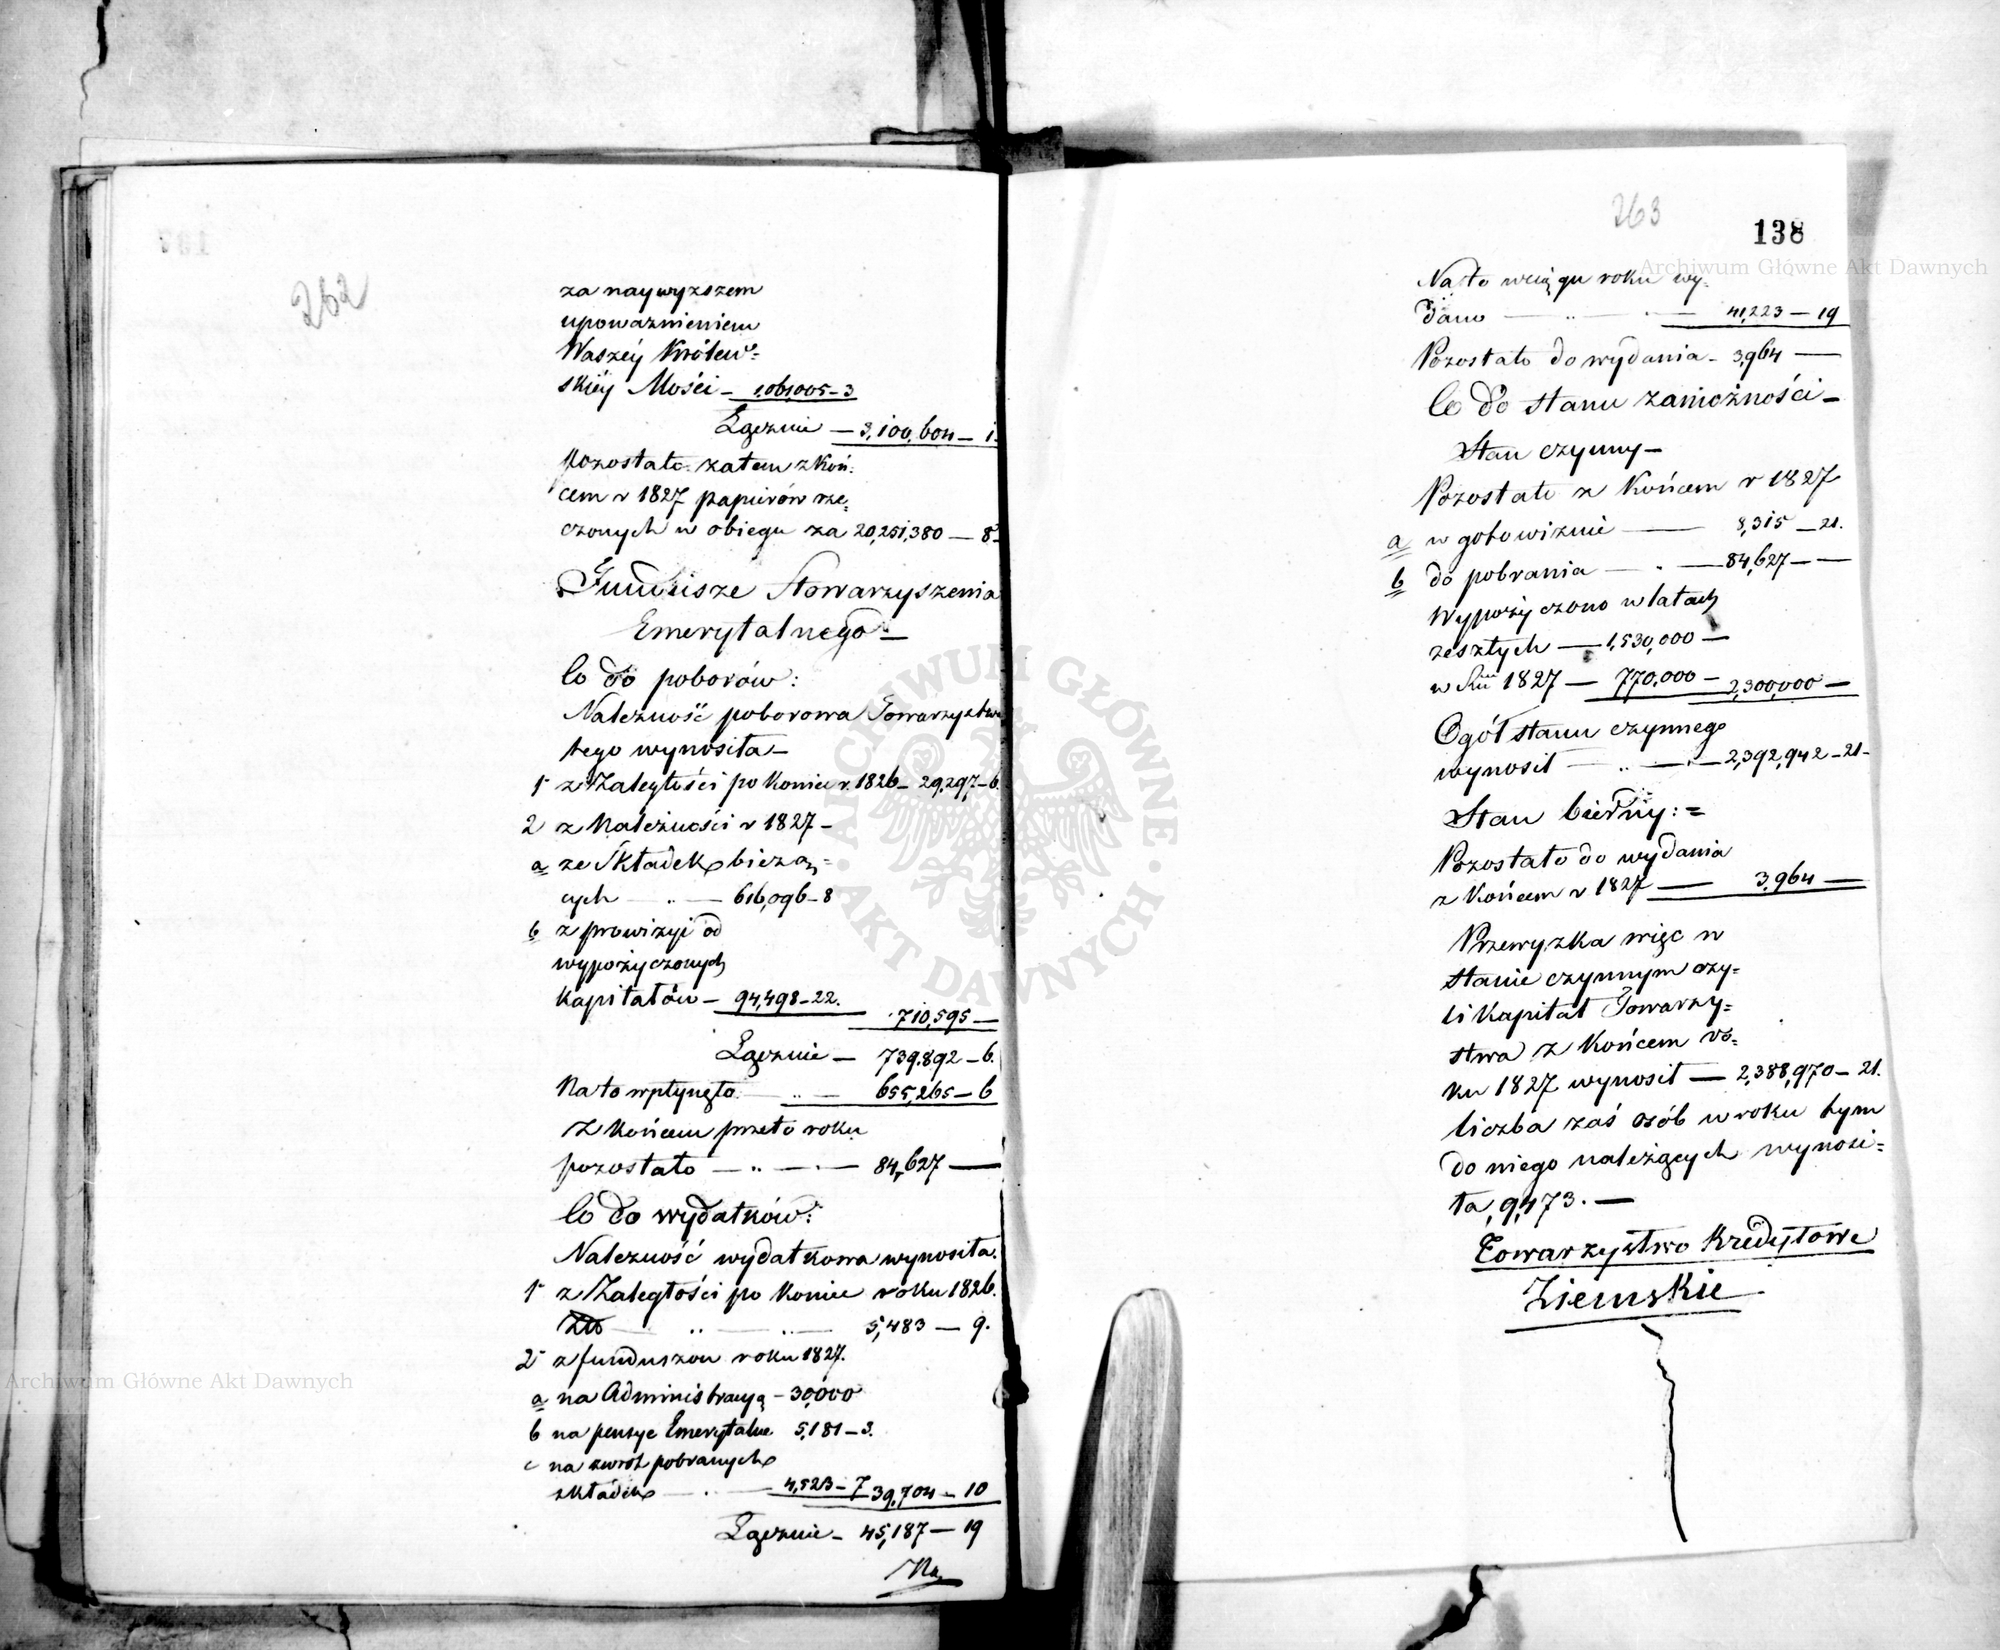 262
za naywyższem
upoważnieniem
Waszéy Królew-
skiéy Mości – 1,061,005 – 3
Łącznie — 3,100,604 – 1.
pozostało zatem z koń-
cem r 1827 papierów rze-
czonych w obiegu za 20,251,380 — 8.
Fundusze Stowarzyszenia
Emerytalnego –
Co do poborów:
Należność poborowa Towarzystwa
tego wynosiła –
1 z Zaległości po koniec r. 1826 – 29,297 – 6.
2 z Należności r 1827 –
a ze Składek bieżą-
cych — 616,096 – 8
b z prowizyi od
wypożyczonych
kapitałów – 94,498 – 22.
710,595 —
Łącznie – 739,892 – 6.
Na to wpłynęło — 655,265 – 6
Z końcem przeto roku
pozostało — 84,627 —
Co do wydatków:
Należność wydatkowa wynosiła.
1 z Zaległości po koniec roku 1826.
5,483 — 9.
2 z funduszou roku 1827.
a na Administracyą – 30,000
b na pensye Emerytalne 5,181 – 3.
c na zwrot pobranych
składek — 4,523 – 7 39,704 – 10
Łącznie – 45,187 – 19
Na
263
138
Na to w ciągu roku wy-
dano — 41,223 – 19
Pozostało do wydania – 3,964 —
Co do stanu zamożności –
Stan czynny –
Pozostało z Końcem r 1827
a w gotowiznie — 8,315 – 21.
b do pobrania — 84,627 —
Wypożyczono w latach
zeszłych — 1,530,000 –
w Rku 1827 – 770,000 – 2,300,000 –
Ogół stanu czynnego
wynosił — 2,392,942 – 21 –
Stan bierny: =
Pozostało do wydania
z Końcem r 1827 — 3,964 —
Przewyżka więc w
stanie czynnym czy-
li kapitał Towarzy-
stwa z Końcem ro-
ku 1827 wynosił — 2,388,970 – 21.
liczba zaś osób w roku tym
do niego należących wynosi-
ła, 9,473. —
Towarzystwo Kredytowe
Ziemskie
ARCHIWUM GŁÓWNE AKT DAWNYCH
Archiwum Główne Akt Dawnych
Archiwum Główne Akt Dawnych